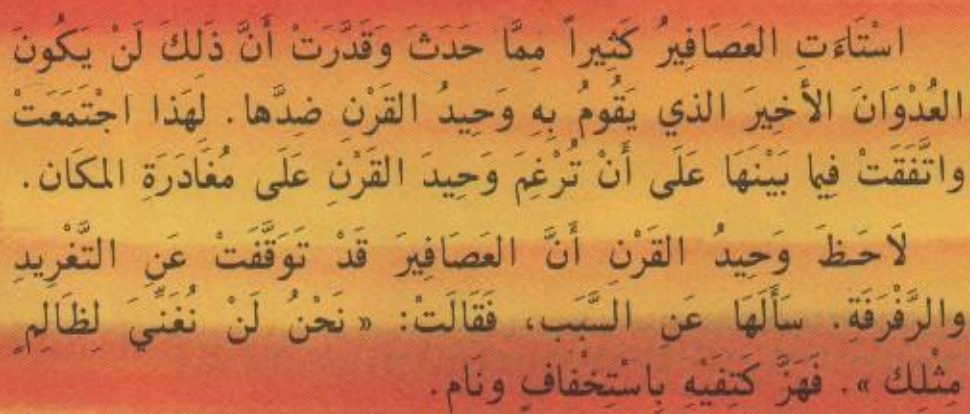 اسْتَاءَتِ العَصَافِيرُ كَثِيراً مِمَّا حَدَثَ وَقَدَّرَتْ أَنَّ ذَلكَ لَنْ يَكُونَ
العُدْوَانَ الأَخيِرَ الذي يَقُومُ بِهِ وَحِيدُ القَرْنِ ضِدَّها. لِهَذا اجْتَمَعَتْ
واتَّفَقَتْ فِيما بَيْنَهَا عَلَى أَنْ تُرْغِمَ وَحِيدَ القَرْنِ عَلَى مُغَادَرَةِ المكَان.
لَاحَظَ وَحِيدُ القَرْنِ أَنَّ العَصَافِيرَ قَدْ تَوَقَّفَتْ عَنِ التَّغْرِيدِ
والرَّفْرَفَةِ. سَأَلَهَا عَنِ السَّبَب، فَقَالَتْ: « نَحْنُ لَنْ نُغَنِّيَ لِظَالِمٍ
مِثْلك ». فَهَزَّ كَتِفَيْهِ بِاسْتِخْفَافٍ ونَام.